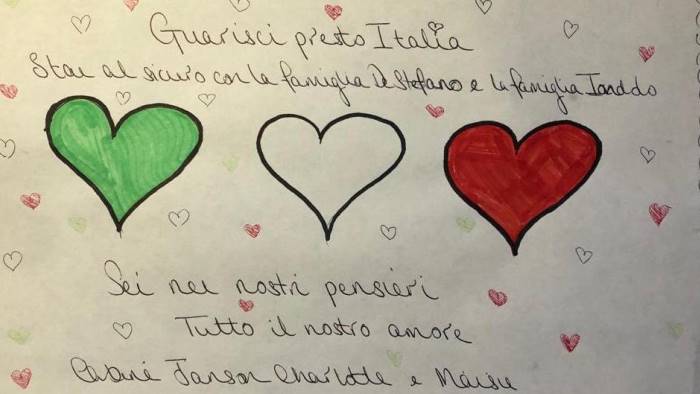 Guarisci presto Italia
Stai al sicuro con la famiglia De Stefano e la famiglia
Sei nei nostri pensieri
Tutto il nostro amore
Charlotte e Maisie